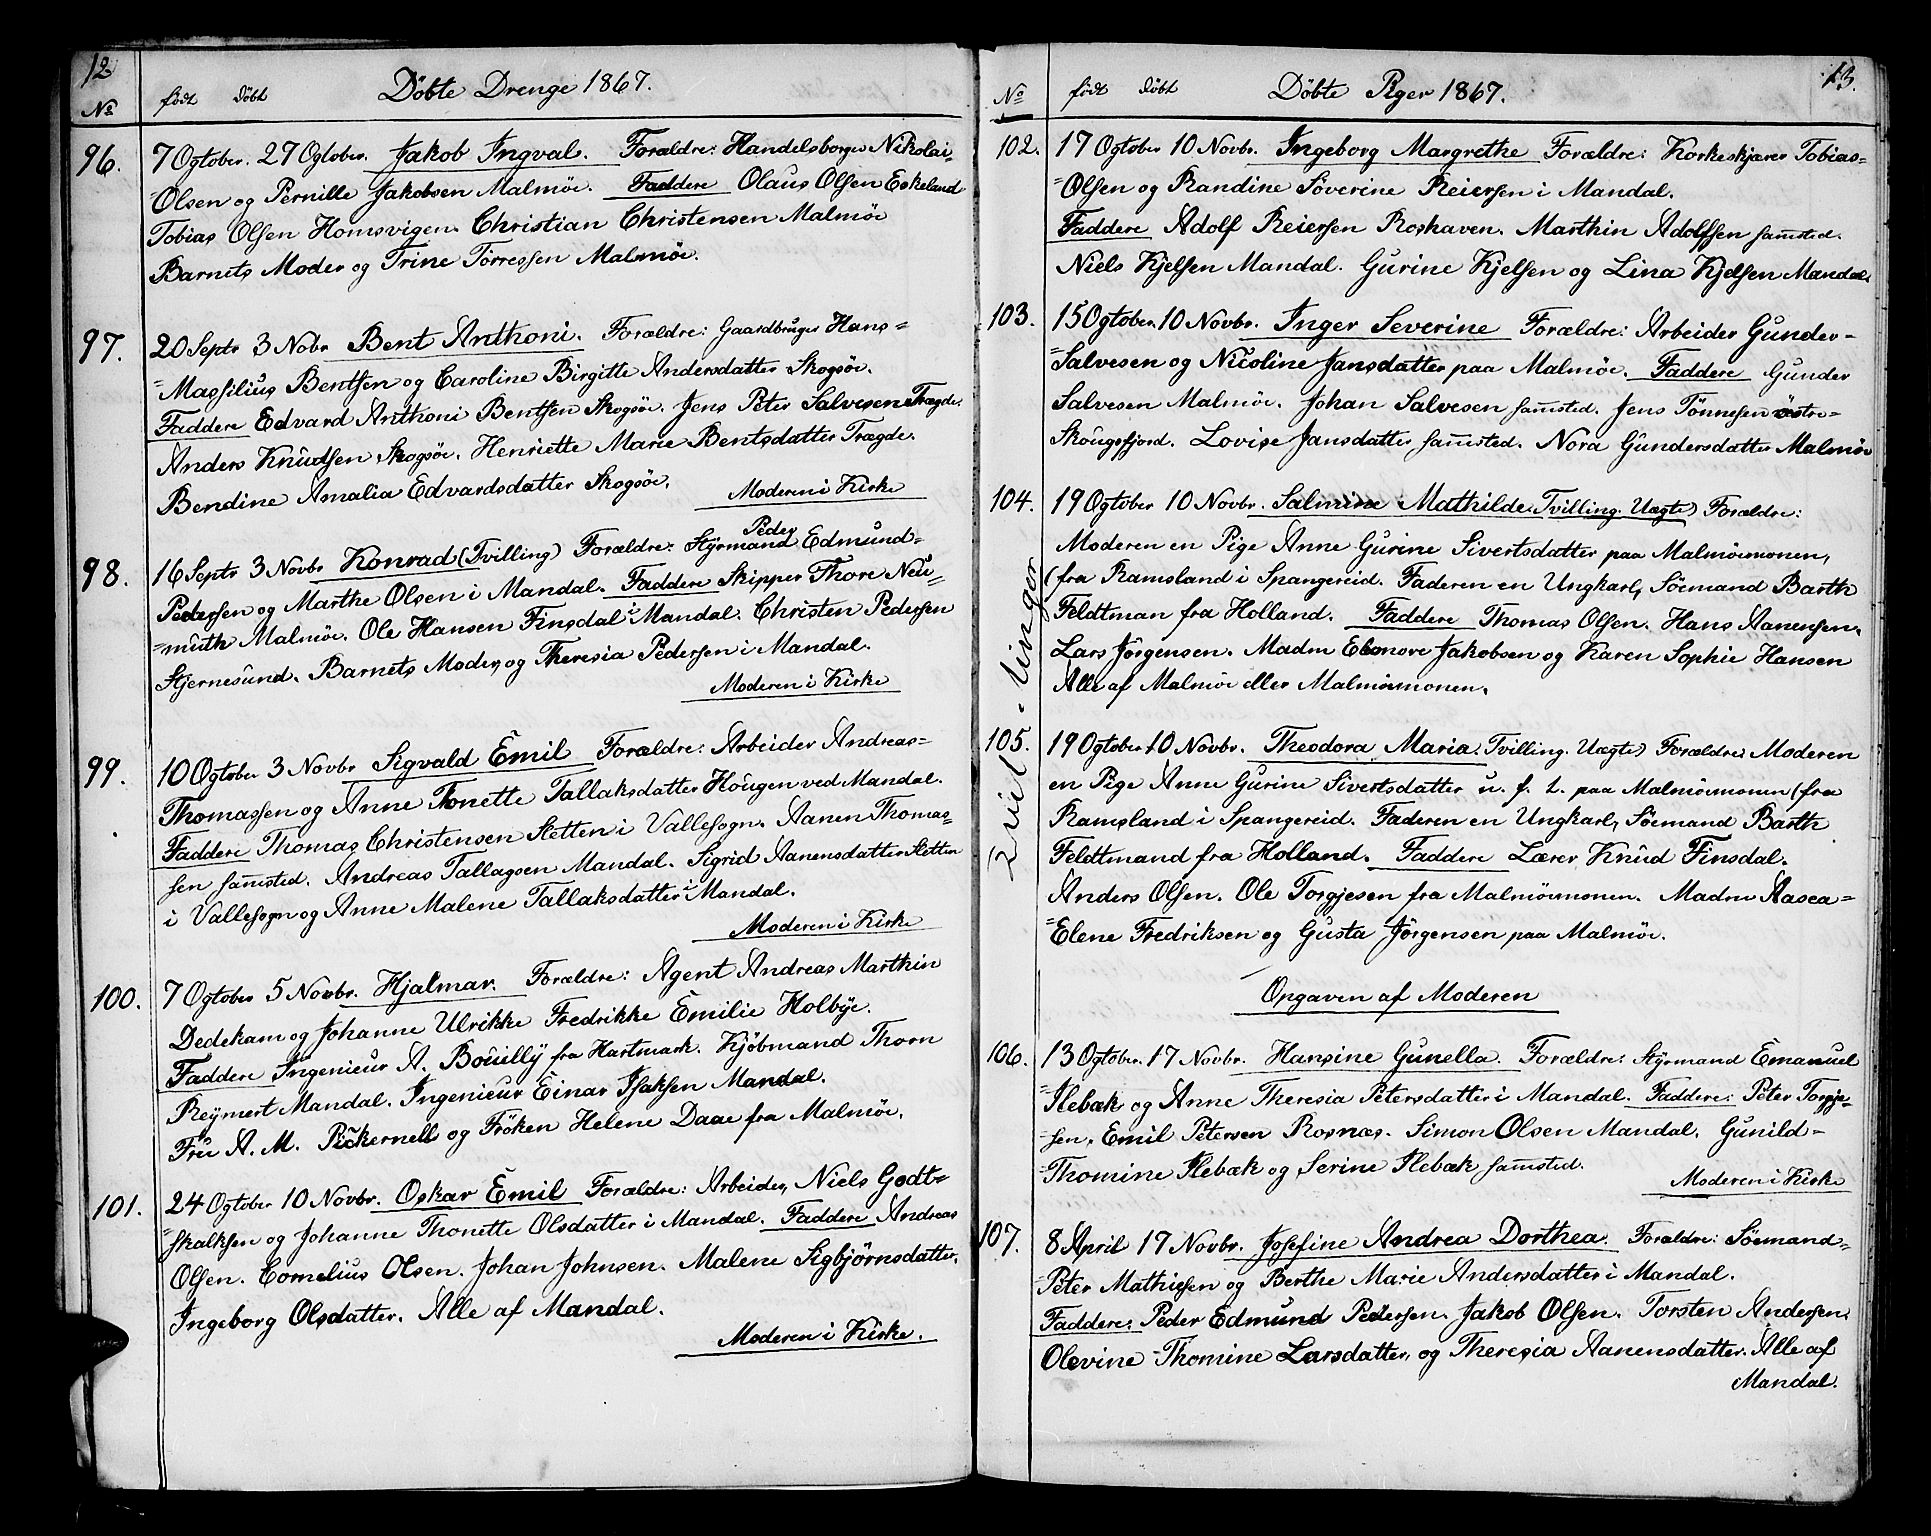 12
Nº født Døbt Döbte Drenge 1867.
96. 7 Ogtober. 27 Ogtober. Jakob Ingval. Forældre: Handelsborger Nikolai-
=Olsen og Pernille Jakobsen Malmöe. Faddere Olaus Olsen Eskeland
Tobias Olsen Homsvigen. Christian Christensen Malmöe
Barnets Moder og Trine Törressen Malmöe.
97. 20 Septr 3 Nobr Bent Anthoni. Forældre: Gaardbruger Hans=
=Massilius Bentsen og Caroline Birgitte Andersdatter Skogsöe.
Faddere Edvard Anthoni Bentsen Skogsöe. Jens Peter Salvesen Trægde.
Anders Knudsen Skogsöe. Henriette Marie Bentsdatter Trægde.
Bendine Amalia Edvardsdatter Skogsöe.
Moderen i Kirke
Peder
98. 16 Septr 3 Novbr Konrad (Tvilling) Forældre: Styrmand Edmund=
Pedersen og Marthe Olsen i Mandal. Faddere Skipper Thore Neu=
=muth Malmöe. Ole Hansen Finsdal i Mandal. Christen Pedersen
Stjernesund. Barnets Moder, og Theresia Pedersen i Mandal.
Moderen i Kirke
99. 10 Ogtober 3 Novbr Sigvald Emil Forældre: Arbeider Andreas=
Thomassen og Anne Tonette Tallaksdatter Hougen ved Mandal.
Faddere Thomas Christensen Sletten i Vallesogn. Aanen Thomas=
sen samsted. Andreas Tallagsen Mandal. Sigrid Aanensdatter Sletten
i Vallesogn og Anne Malene Tallaksdatter i Mandal.
Moderen i Kirke
100. 7 Ogtober 5 Novbr. Hjalmar. Forældre: Agent Andreas Marthin
Dedekam og Johanne Ulrikke Fredrikke Emilie Holbye.
Faddere Ingenieur A. Bouilly fra Hartmark. Kjöbmand Thorn
Reymert Mandal. Ingenieur Einar Isaksen Mandal.
Fru A. M. Pickernell og Fröken Helene Daae fra Malmöe.
101. 24 Ogtober 10 Novbr. Oskar Emil Forældre: Arbeider, Niels Godt=
=skalksen og Johanne Thonette Olsdatter i Mandal. Faddere Andreas
Olsen. Cornelius Olsen. Johan Johnsen. Malene Sigbjörnsdatter.
Ingeborg Olsdatter. Alle af Mandal.
Moderen i Kirke.
13.
Nº født Døbt Döbte Piger 1867.
102. 17 Ogtober 10 Novbr. Ingeborg Margrethe Forældre: Korkeskjærer Tobias=
=Olsen og Randine Söverine Reiersen i Mandal.
Faddere Adolf Reiersen Roshaven. Marthin Adolfsen samsted.
Niels Kjelsen Mandal. Gurine Kjelsen og Lina Kjelsen Mandal.
103. 15 Ogtober. 10 Novbr. Inger Severine Forældre: Arbeider Gunder-
=Salvesen og Nicoline Jansdatter paa Malmöe. Faddere Gunder
Salvesen Malmöe. Johan Salvesen samsted. Jens Tönnesen östre=
Skougsfjord. Lovise Jansdatter samsted. Nora Gundersdatter Malmöe
104. 19 Ogtober 10 Novbr. Salmine Mathilde. Tvilling. Uægte) Forældre:
Moderen en Pige Anne Gurine Sivertsdatter paa Malmöemonen,
(fra Ramsland i Spangereid. Faderen en Ungkarl, Söemand Barth
Feldtman fra Holland. Faddere Thomas Olsen. Hans Aanensen.
Lars Jörgensen. Madm Elenore Jakobsen og Karen Sophie Hansen
Alle af Malmöe eller Malmöemonen.
Tvillinger
105. 19 Ogtober 10 Novbr. Theodora Maria. Tvilling. Uægte) Forældre: Moderen
en Pige Anne Gurine Sivertsdatter u. f. L. paa Malmöemonen (fra
Ramsland i Spangereid. Faderen en Ungkarl, Söemand Barth
Feldtmand fra Holland. Faddere Lærer Knud Finsdal.
Anders Olsen. Ole Torgjesen fra Malmöemonen. Madm Aasea=
=Elene Fredriksen og Gusta Jörgensen paa Malmöe.
Opgaven af Moderen
106. 13 Ogtober. 17 Novbr. Hansine Gunella. Forældre: Styrmand Emanuel
=Ilebæk og Anne Theresia Petersdatter i Mandal. Faddere: Peter Torgje=
=sen, Emil Petersen Rosnæs. Simon Olsen Mandal. Gunild=
=Thomine Ilebæk og Serine Ilebæk samsted.
Moderen i Kirke
107. 8 April 17 Novbr. Josefine Andrea Dorthea. Forældre: Söemand=
=Peter Mathissen og Berthe Marie Andersdatter i Mandal.
Faddere: Peder Edmund Pedersen. Jakob Olsen. Torsten Andersen.
Olevine Thomine Larsdatter, og Theresia Aanensdatter. Alle af
Mandal.